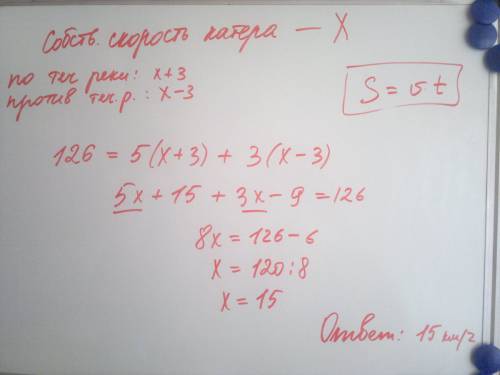 Собств. скорость катера — X
по теч реки: x+3
против теч.р.: x-3
S = vt
126 = 5(x+3) + 3(x-3)
5x + 15 + 3x - 9 = 126
8x = 126 - 6
x = 120:8
x = 15
Ответ: 15 км/ч